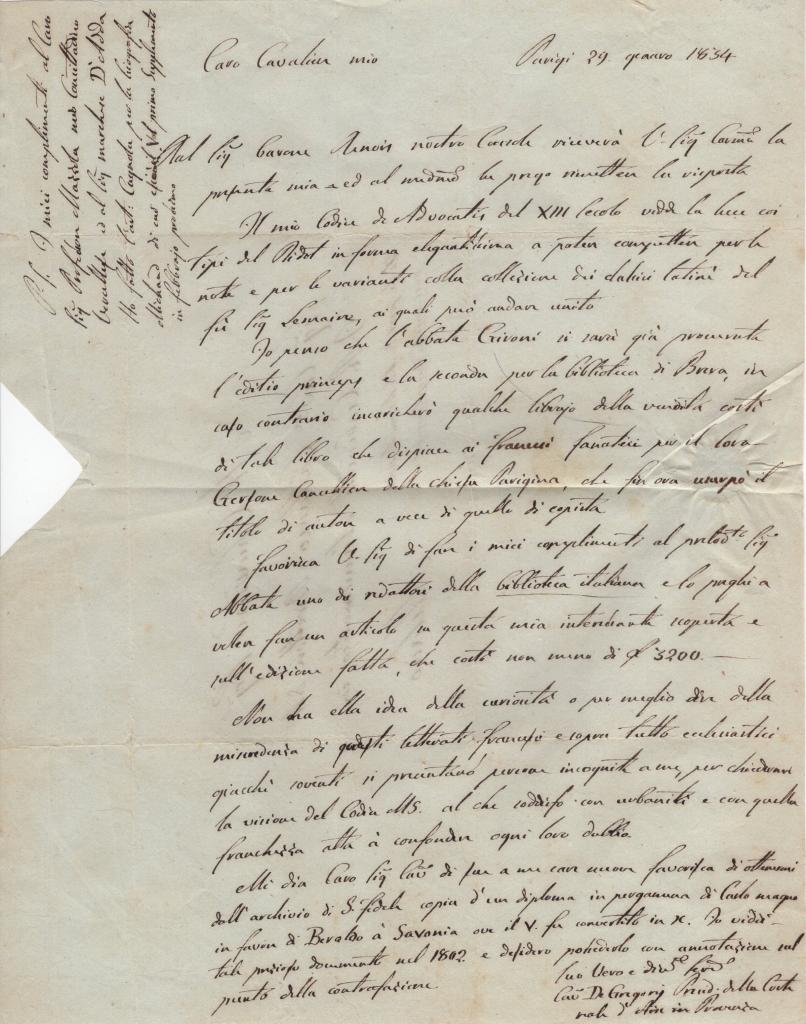 Caro Cavalier mio Parigi 29 gennaro 1834
Dal Sig barone nostro Console riceverà V. Sig Carma la
presente mia ed al medmo la prego rimetter la risposta
Il mio Codice de Advocatis del XIII secolo vidde la luce coi
tipi del Didot in forma elegantissima a poter competter per le
note e per le varianti colla collezione dei classici latini del
fù Sig Lemaire, ai quali può andare unito
Io penso che l'abbate Gironi si sarà già procurato
l'editio princeps e la seconda per la biblioteca di Brera, in
caso contrario incaricherò qualche librajo della vendita costì
di tale libro che dispiace ai francesi fanatici per il loro
Gersone Cancellier della chiesa Parigina, che fin ora usurpò il
titolo di autore a vece di quello di copista
favorisca V. Sig di fare i miei complimenti al prelodto Sig
Abbate uno dei redattori della biblioteca italiana e lo preghi a
voler fare un articolo su questa mia interessante scoperta e
sull'edizione fatta, che costò non meno di £ 3200. —
Non ha ella idea della curiosità o per meglio dire della
miscredenza di questi letterati francesi e sopra tutto ecclesiastici
giacchè soventi si presentano persone incognite a me, per chiedermi
la visione del Codice MS. al che soddisfo con urbanità e con quella
franchezza atta à confonder ogni loro dubbio
Mi dia Caro Sig Cavre di sue a me care nuove favorisca di ottenermi
dall'archivio di S. fidele copia d'un diploma in pergamena di Carlo magno
in favore di Beraldo à Savonia ove il V. fu convertito in x. Io viddi
tale prezioso documento nel 1802 e desidero possederlo con annotazione sul
punto della contrafazione.
Suo Vero e
Cavre De Gregorj Presid. della Corte
reale d'Aix in Provenza
P.S. I miei complimenti al Caro
Sig Professore mio Concittadino
Vercellese ed al Sig marchese D'Adda
Ho fatto l'art: Cagnola per la biografia
Michaud di cui il Vol primo supplimento
in febbrajo prossimo